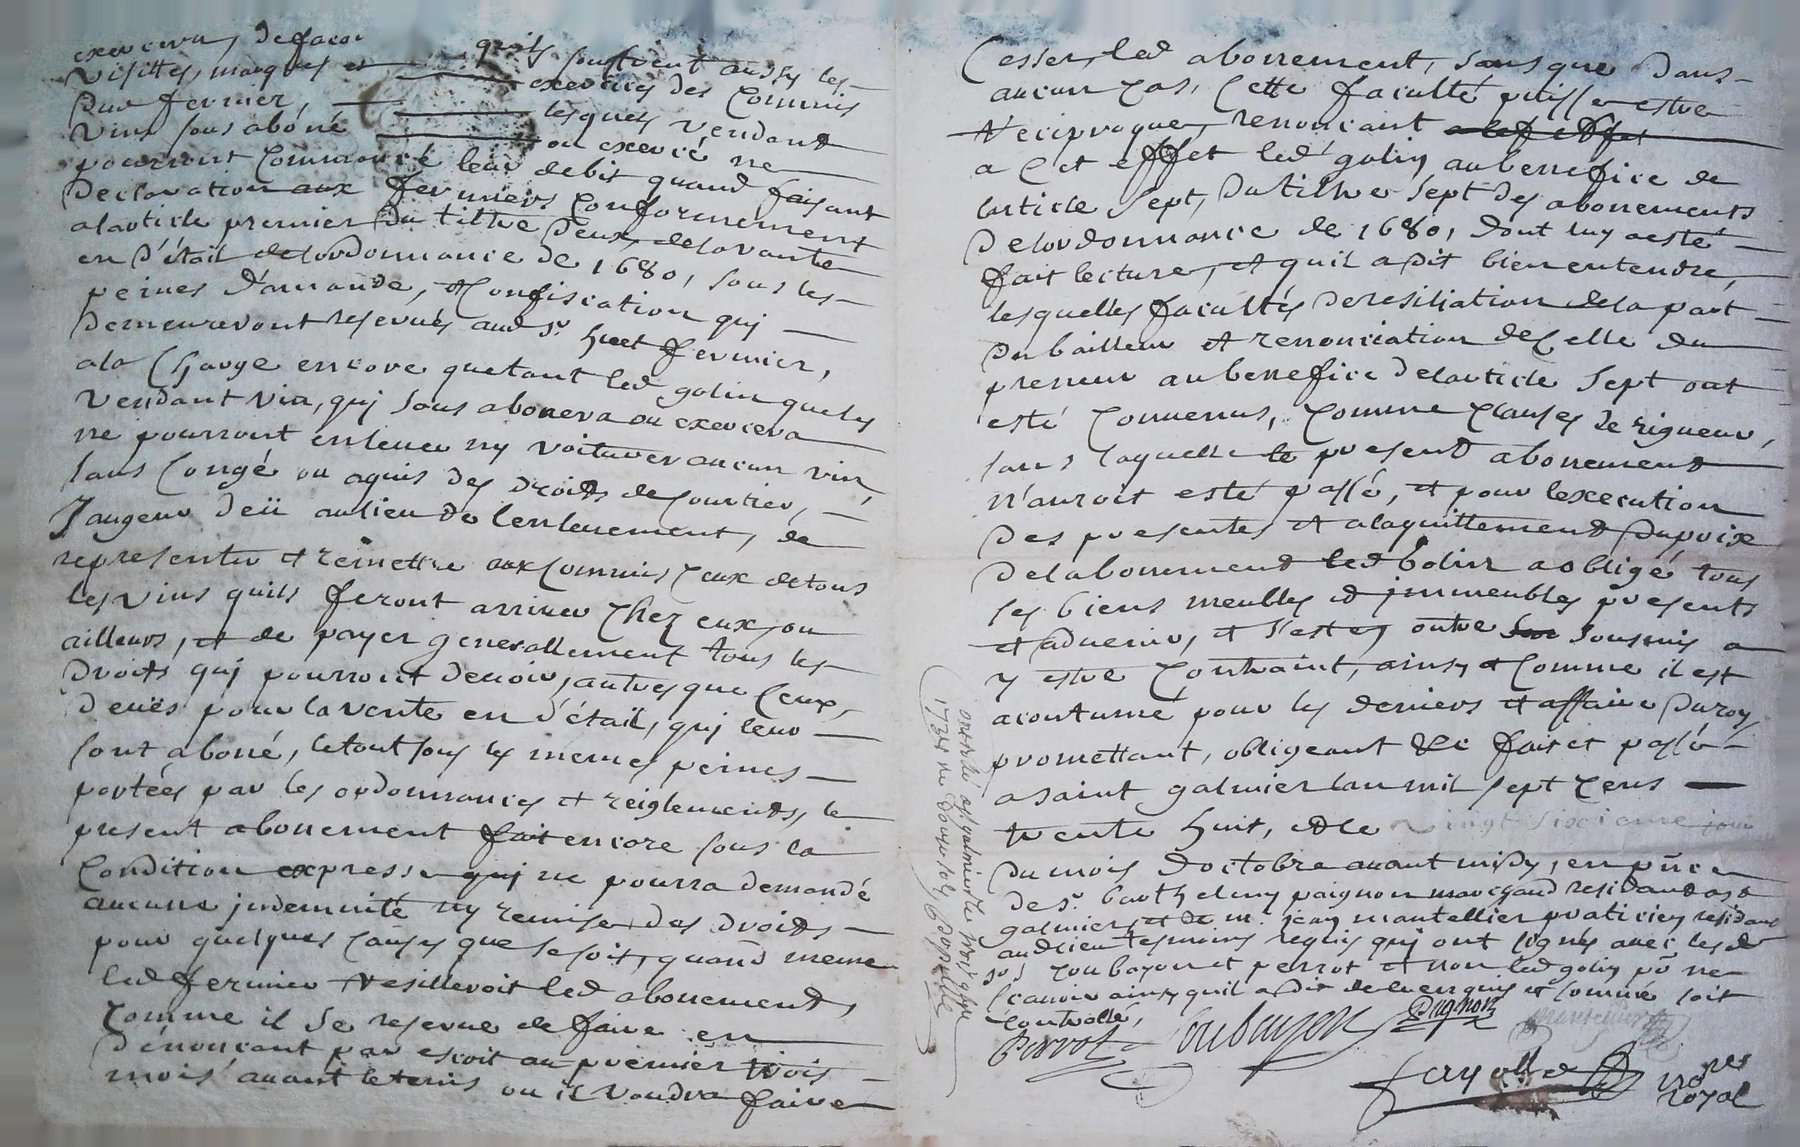 exercera, de facon
visittes, marques et quils souffrent aussy les
dud fermier, exercices des Commis
vins sous aboné lesquels vendant
ou exercé ne
pourront commancé leur debit quand faisant
declaration aux fermiers conformement
alarticle premier du tiltre deux, de la vante
en détail de lordonnance de 1680, sous les
peines damande, et confiscation quj
demeureront reservés aud sr huet fermier,
ala charge encore que tant led golin que les
vendant vin, quj sous abonera ou exercera
ne pourront enlever ny voiturer aucun vin,
sans congé ou aquis des droits de courtier,
Jaugeur deü au lieu de lenlevement, de
representer et remettre aux commis ceux de tous
les vins quils feront arriver chez eux, ou
ailleurs, et de payer generallement tous les
droits quj pourroit devoir, autres que ceux,
deuës pour la vente en détail, quj leur
sont aboné, le tout sous les memes peines
portées par les ordonnances et reiglements, le
present abonement fait encore sous la
Condition expresse quj ne pourra demandé
aucune jndemnité ny remise des droits
pour quelques causes que se soit, quand meme
led fermier resilleroit led abonement,
comme il se reserve de faire en
dénonçant par escrit au premier trois
mois avant le tems ou il voudra faire
Cesser, led abonement, sans que dans
aucun cas, Cette faculté puisse estre
Reciproque, renoncant a cet effet
a Cet effet led golin au benefice de
larticle sept, du tiltre sept des abonements
de lordonnance de 1680, dont luy a esté
fait lecture, et quil a dit bien entendre,
lesquelles facultés de resiliation de la part
du bailleur et renonciation de Celle du
preneur au benefice de larticle sept ont
esté convenus, comme clauses de rigueur,
sans laquelle le present abonement
n'auroit esté passé, et pour lexecution
des presentes et alaquittement du prix
de labonement led Golin a obligé tous
ses biens meubles et jmmeubles presents
et advenir, et s'est en outre soumis a
y estre contraint, ainsy et comme il est
acoutumé pour les deniers et affaires du roy
promettant, obligeant &c fait et passé
a saint galmier lan mil sept cens
trente huit, et le vingt sixieme jour
du mois doctobre avant midy, en pñce
de sr barthelemy paignon marchand residant a st
galmier, et de mr jean mantellier praticien residant
aud lieu tesmoins requis quj ont signés avec lesd
srs coubayon et perrot et non led golin pr ne
scavoir ainsy quil a dit de ce enquis et sommé soit
controlle,
Perrot Coubayon Pagnon
Mantellier
Fayolle nore
royal